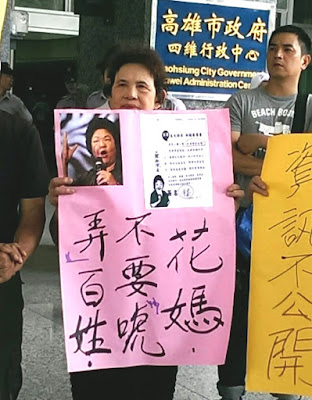 高雄市政府
四維行政中心
aohsiung City Government
wei Administration Cen
BEACH BO
花媽
不要唬
弄百姓
資訊不公開